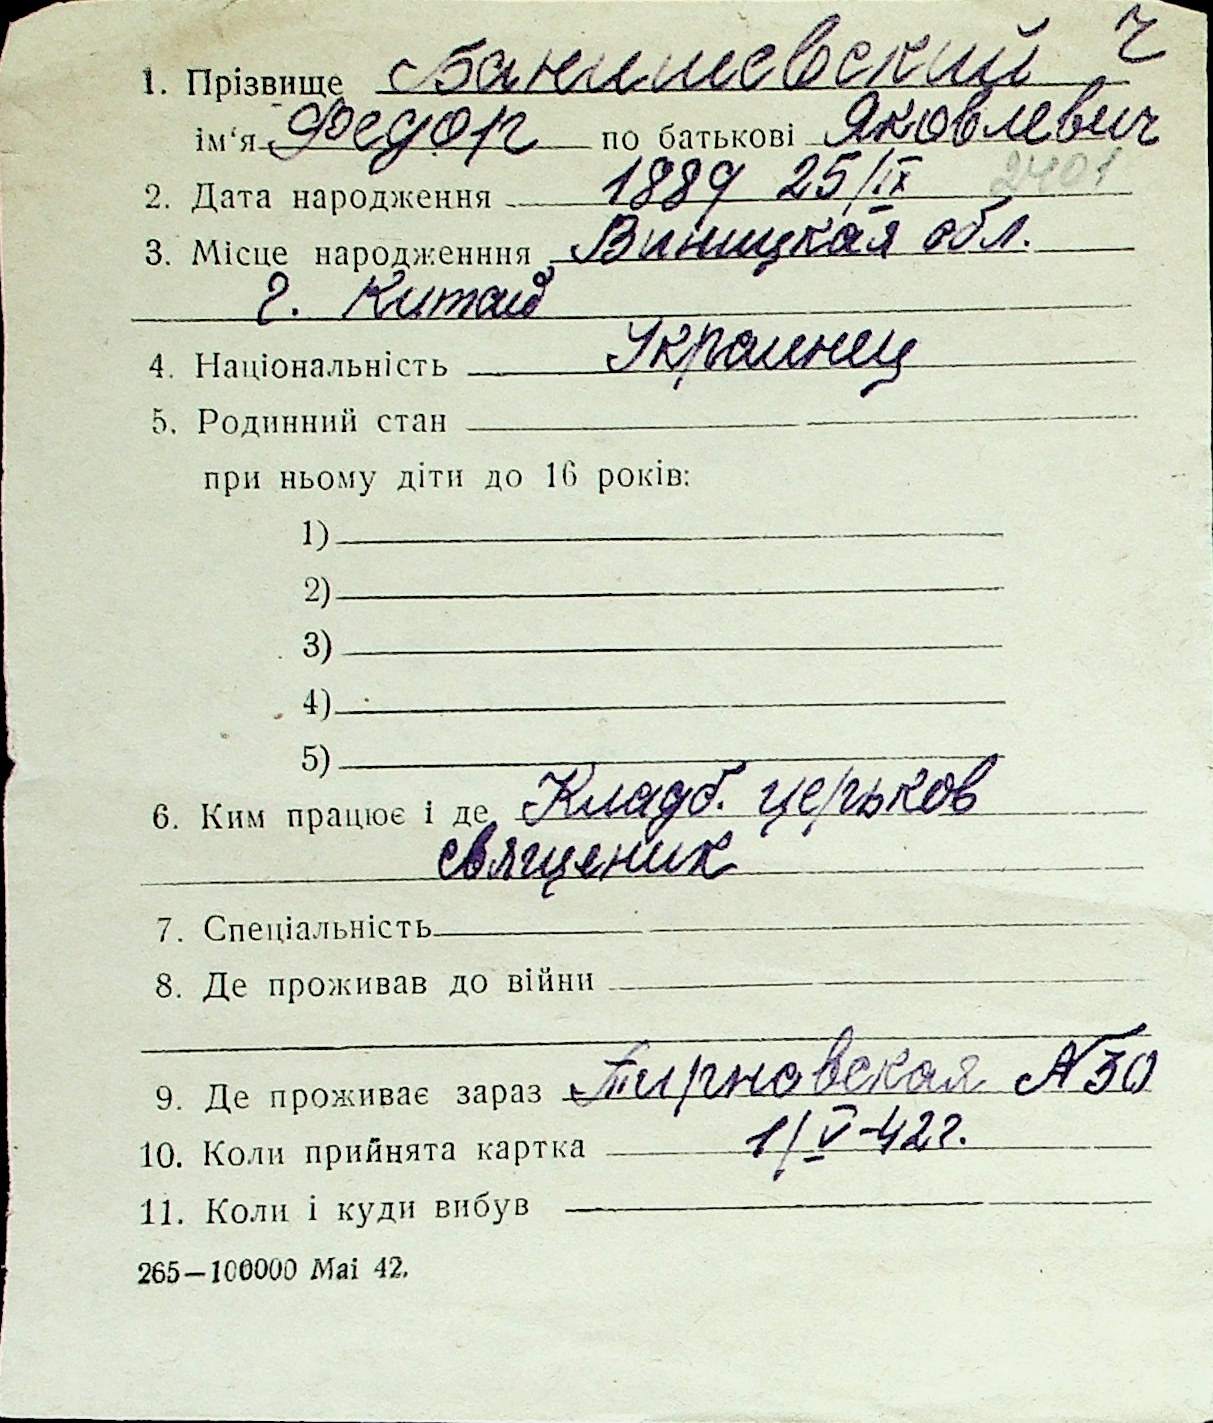 ч
1. Прізвище Банишевский
ім'я Федор по батькові Яковлевич
2. Дата народження 1889 25/IX 2401
3. Місце народженння Виницкая обл.
г. Китай
4. Національність Украинец
5. Родинний стан
при ньому діти до 16 років:
1)
2)
3)
4)
5)
6. Ким працює і де Кладб. церьков
священик
7. Спеціальність
8. Де проживав до війни
9. Де проживає зараз Тирновская №30
10. Коли прийнята картка 1/V-42г.
11. Коли і куди вибув
265—100000 Mai 42.